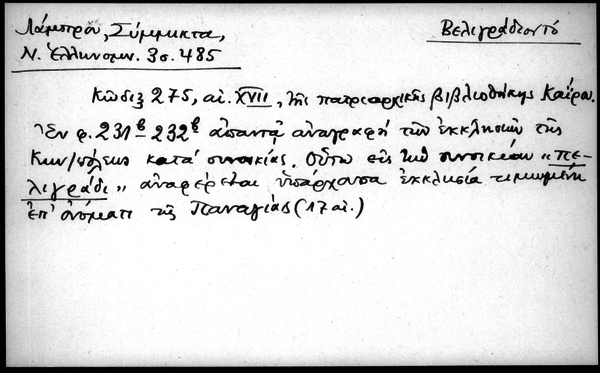 Λάμπρου, Σύμμικτα,
Ν. Ἑλληνομν. 3 σ. 485
Βελιγράδιον τό
Κῶδιξ 275, αἰ. XVII, τῆς πατριαρχικῆς βιβλιοθήκης Καΐρου.
Ἐν φ. 231β-232β ἀπαντᾷ ἀναγραφή τῶν ἐκκλησιῶν τῆς
Κων/πόλεως κατά συνοικίας. Οὕτω εἰς τήν συνοικίαν "Πε-
λιγράδι" ἀναφέρεται ὑπάρχουσα ἐκκλησία τιμωμένη
ἐπ' ὀνόματι τῆς Παναγίας (17 αἰ.)